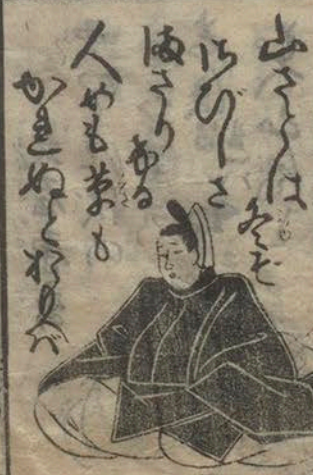 山さとは
冬ぞ
さびしさ
まさり
ける
人めも草も
かれぬとおもへば